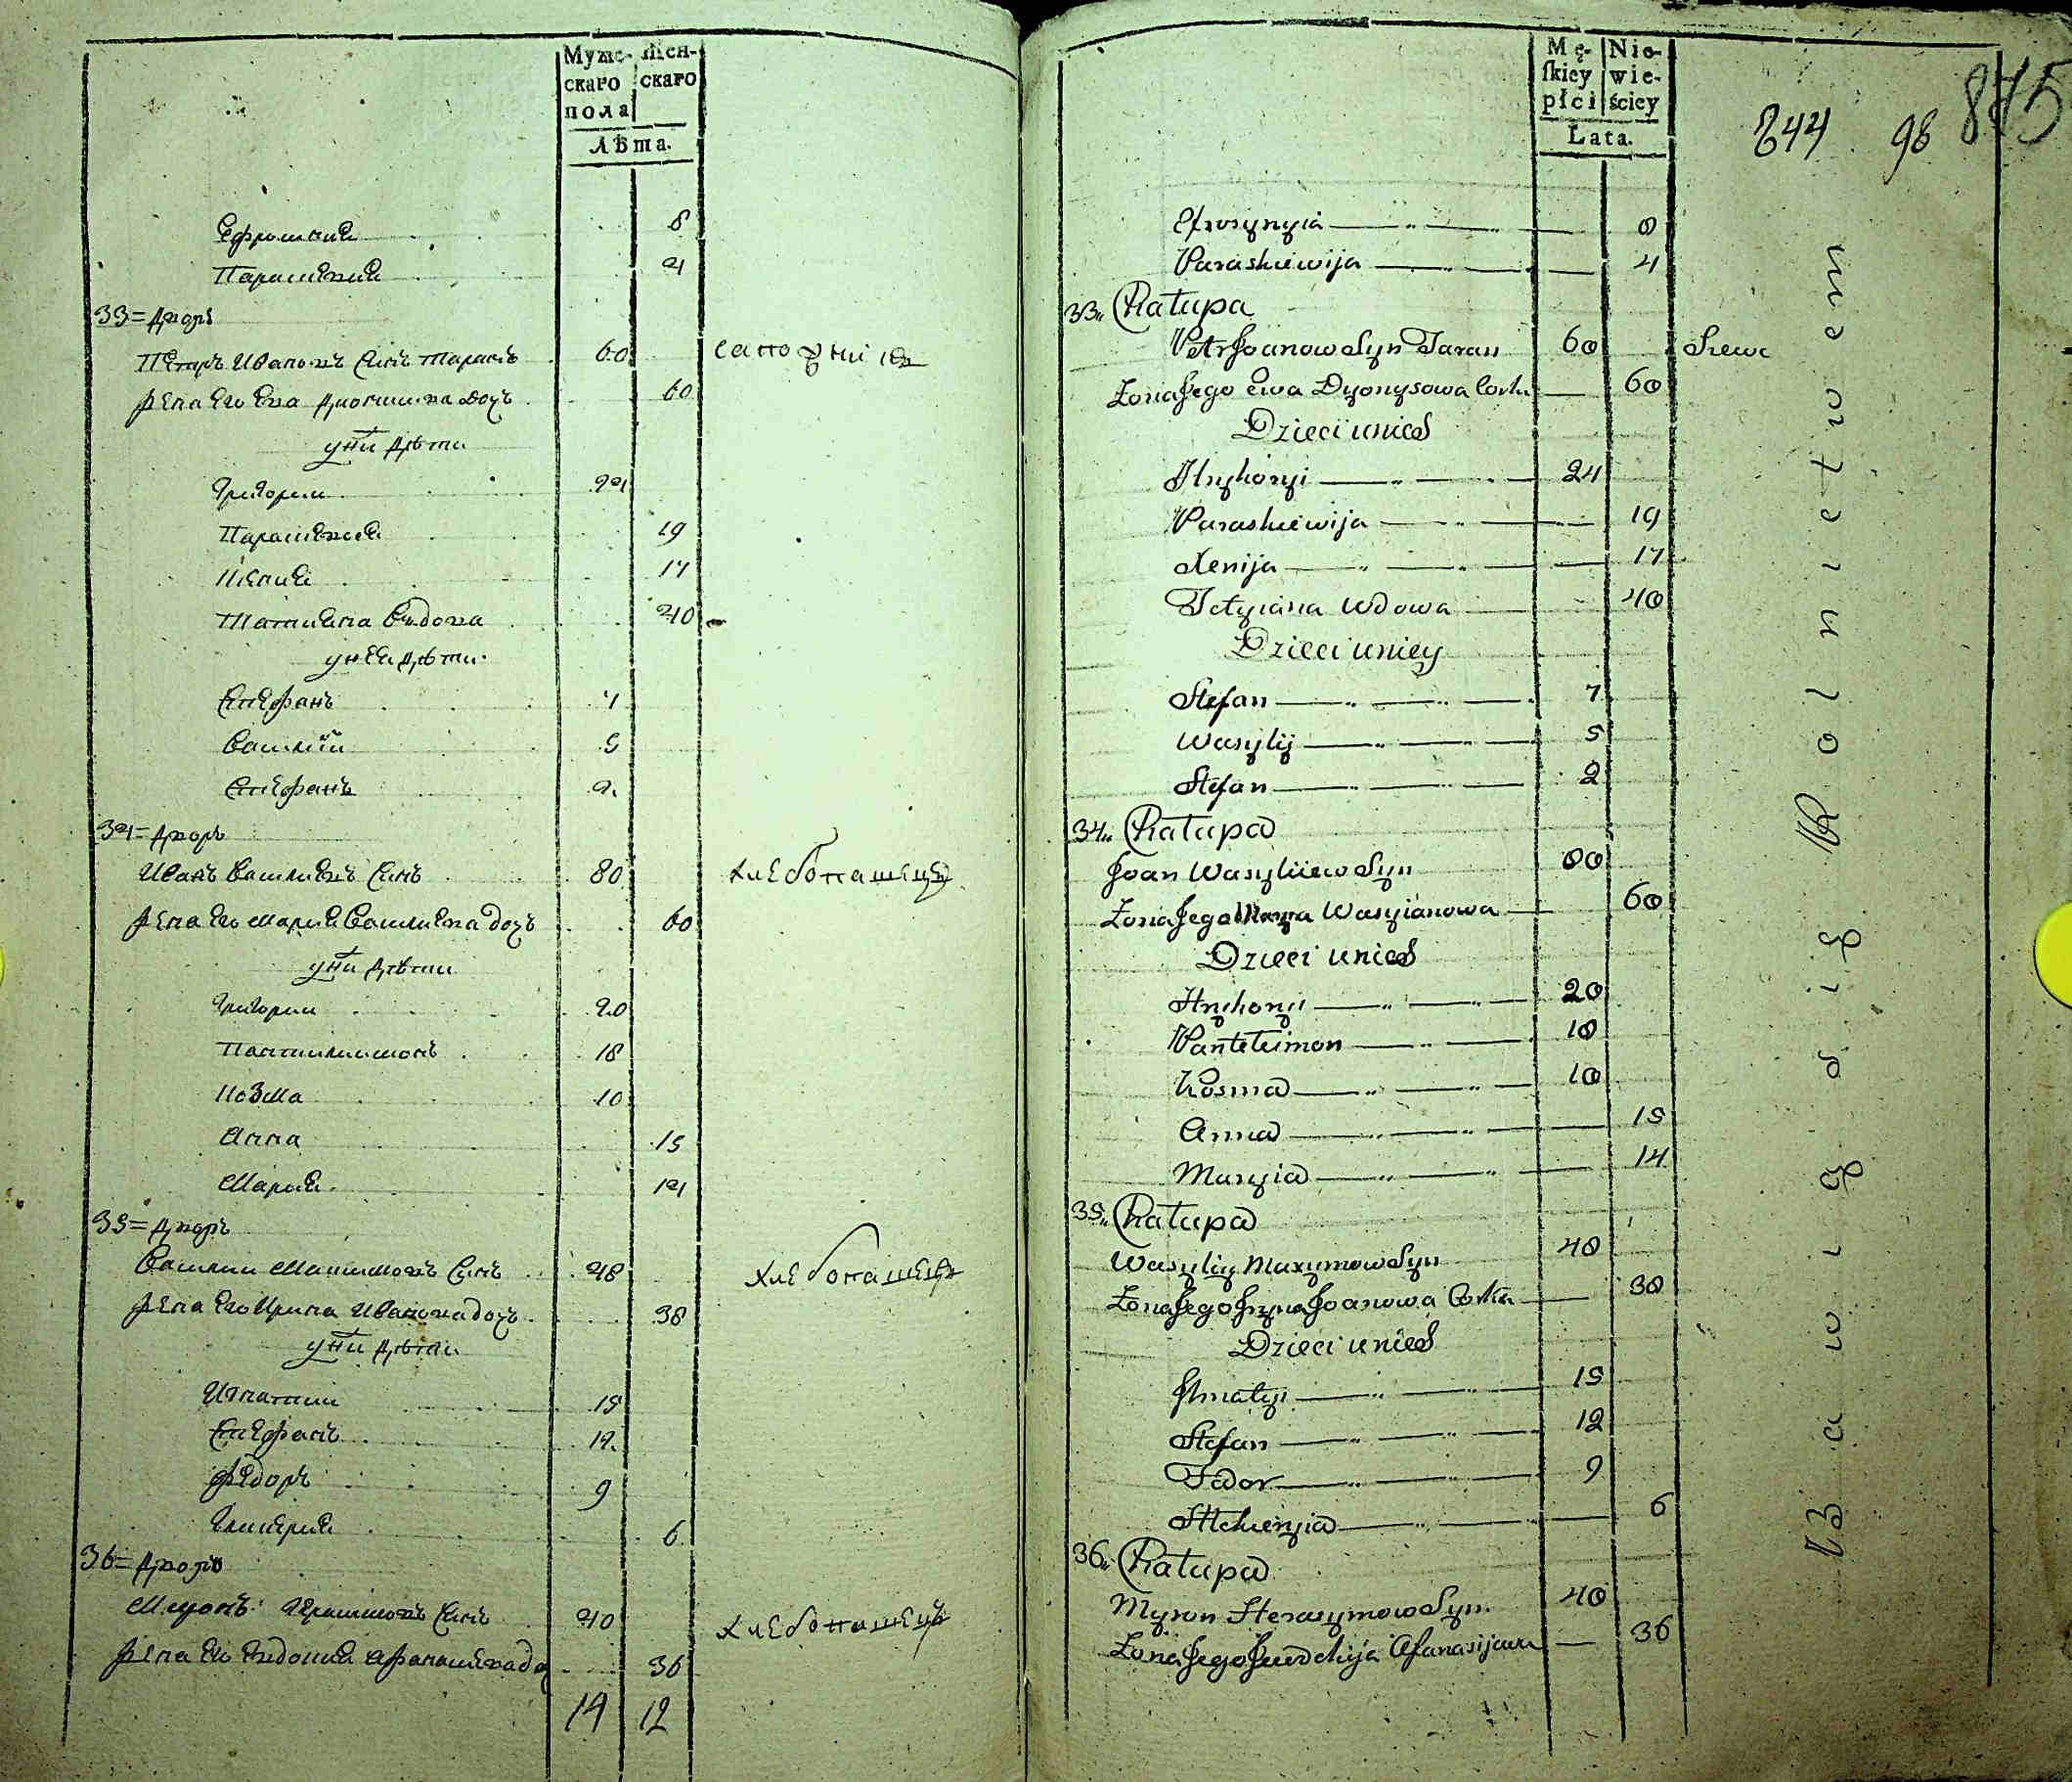 Муже-
скаго
пола
Жен-
скаго
Лѣта.
Ефросиния 8
Параскевия 4
33= Дворъ
Петръ Ивановъ Синъ Таранъ 60 сапожникъ
Жена Его Ева Дионисиева Дочъ 60
у них Дѣти
Григорий 24
Параскевия 19
Ксения 17
Татиана Вдова 40
у неи Дѣти
Стефанъ 7
Василий 5
Стефанъ 2
34= Дворъ
Иванъ Василиевъ Синъ 80 хлебопашецъ
Жена Его Мария Василиева дочъ 60
у них Дѣти
Григорий 20
Пантилимонъ 18
Козма 10
Анна 15
Мария 14
35= Дворъ
Василий Максимовъ Синъ 48 хлебопашецъ
Жена Его Ирина Иванова дочъ 38
у них Дѣти
Игнатий 15
Стефанъ 12
Федоръ 9
Гликерия 6
36= Дворъ
Миронъ Герасимовъ Синъ 40 хлебопашецъ
Жена Его Евдокия Афанасиева до 36
14 12
Mę-
skiey
płci
Nie-
wie-
ściey
Lata.
244 98 875
Efrosynyia 8
Paraskiewija 4
33 Chałupa
Petr Joanow Syn Taran 60 Szewc
Żona Jego Ewa Dyonysowa Corka 60
Dzieci u nich
Hryhoryi 24
Paraskiewija 19
Xenija 17
Tetyiana Wdowa 40
Dzieci u niey
Stefan 7
Wasylij 5
Stefan 2
34 Chałupa
Joan Wasylijew Syn 80
Żona Jego Marya Wasyianowa 60
Dzieci u nich
Hryhoryi 20
Panteleimon 18
Kosma 10
Anna 15
Maryia 14
35 Chałupa
Wasylij Maxymow Syn 48
Żona Jego Iryna Joanowa Corka 38
Dzieci u nich
Ihnatyi 15
Stefan 12
Fedor 9
Hlikeryia 6
36 Chałupa
Myron Herasymow Syn 40
Żona Jego Jewdokija Afanasijewa 36
Bawiąd się Rolnictwem